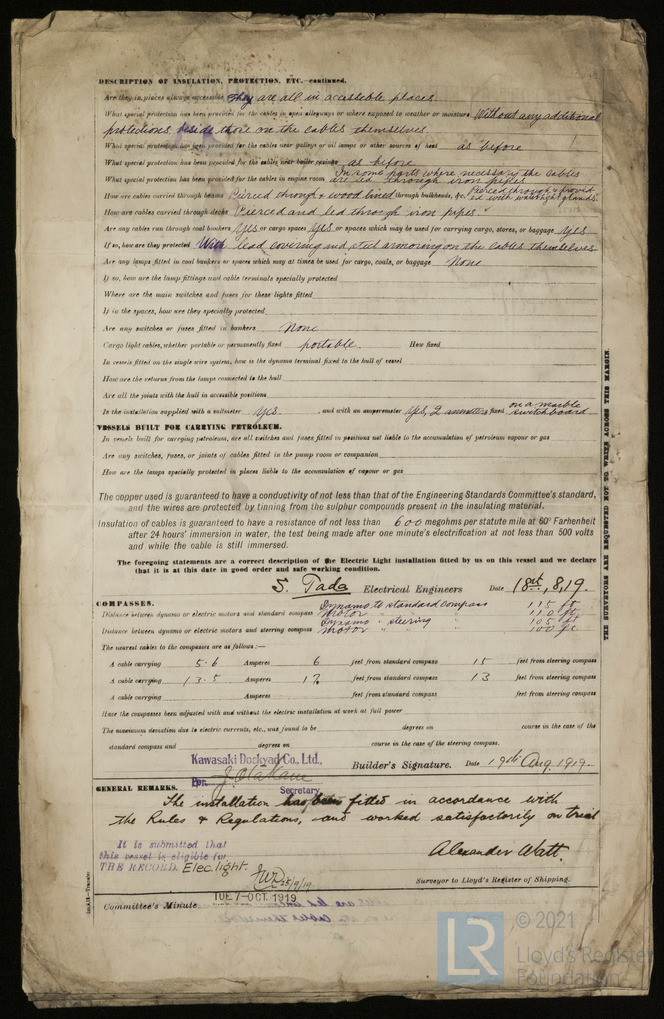 DESCRIPTION OF INSULATION, PROTECTION, ETC.—continued.
Are they in places always accessible They are all in accessible places
What special protection has been provided for the cables in open alleyways or where exposed to weather or moisture Without any additional
protections beside those on the cables themselves
What special protection has been provided for the cables near galleys or oil lamps or other sources of heat as before
What special protection has been provided for the cables near boiler casings as before
What special protection has been provided for the cables in engine room In some parts where necessary the cables
are led through iron pipes
How are cables carried through beams Pierced through & wood lined through bulkheads, &c. Pierced through & provid-
ed with watertight glands.
How are cables carried through decks Pierced and led through iron pipes
Are any cables run through coal bunkers yes or cargo spaces yes or spaces which may be used for carrying cargo, stores, or baggage yes
If so, how are they protected With lead covering and steel armoring on the cables themselves
Are any lamps fitted in coal bunkers or spaces which may at times be used for cargo, coals, or baggage None
If so, how are the lamp fittings and cable terminals specially protected
Where are the main switches and fuses for these lights fitted
If in the spaces, how are they specially protected
Are any switches or fuses fitted in bunkers None
Cargo light cables, whether portable or permanently fixed portable. How fixed
In vessels fitted on the single wire system, how is the dynamo terminal fixed to the hull of vessel
How are the returns from the lamps connected to the hull
Are all the joints with the hull in accessible positions
Is the installation supplied with a voltmeter yes , and with an amperemeter yes, 2 ammeters fixed on a marble
switchboard
VESSELS BUILT FOR CARRYING PETROLEUM.
In vessels built for carrying petroleum, are all switches and fuses fitted in positions not liable to the accumulation of petroleum vapour or gas
Are any switches, fuses, or joints of cables fitted in the pump room or companion
How are the lamps specially protected in places liable to the accumulation of vapour or gas
The copper used is guaranteed to have a conductivity of not less than that of the Engineering Standards Committee's standard,
and the wires are protected by tinning from the sulphur compounds present in the insulating material.
Insulation of cables is guaranteed to have a resistance of not less than 600 megohms per statute mile at 60° Farhenheit
after 24 hours' immersion in water, the test being made after one minute's electrification at not less than 500 volts
and while the cable is still immersed.
The foregoing statements are a correct description of the Electric Light installation fitted by us on this vessel and we declare
that it is at this date in good order and safe working condition.
S. Tada Electrical Engineers Date 18st, 8, 19.
COMPASSES.
Distance between dynamo or electric motors and standard compass Dynamo to standard compass 115 ft
Motor " " " 110 ft
Distance between dynamo or electric motors and steering compass Dynamo " steering " 105 ft
Motor " " " 100 ft
The nearest cables to the compasses are as follows:—
A cable carrying 5.6 Amperes 6 feet from standard compass 15 feet from steering compass
A cable carrying 13.5 Amperes 12 feet from standard compass 13 feet from steering compass
A cable carrying Amperes feet from standard compass feet from steering compass
Have the compasses been adjusted with and without the electric installation at work at full power
The maximum deviation due to electric currents, etc., was found to be degrees on course in the case of the
standard compass and degrees on course in the case of the steering compass.
Kawasaki Dockyard Co., Ltd.,
Builder's Signature. Date 19th Aug. 1919.
For
Secretary
GENERAL REMARKS.
The installation has been fitted in accordance with
the Rules & Regulations, and worked satisfactorily on trial
It is submitted that
this vessel is eligible for
THE RECORD. Elec. light.
25/9/19
Alexander Watt.
Surveyor to Lloyd's Register of Shipping.
TUE 7-OCT. 1919
Committee's Minute
THE SURVEYORS ARE REQUESTED NOT TO WRITE ACROSS THIS MARGIN.
LR
© 2021
Lloyd's Register
Foundation